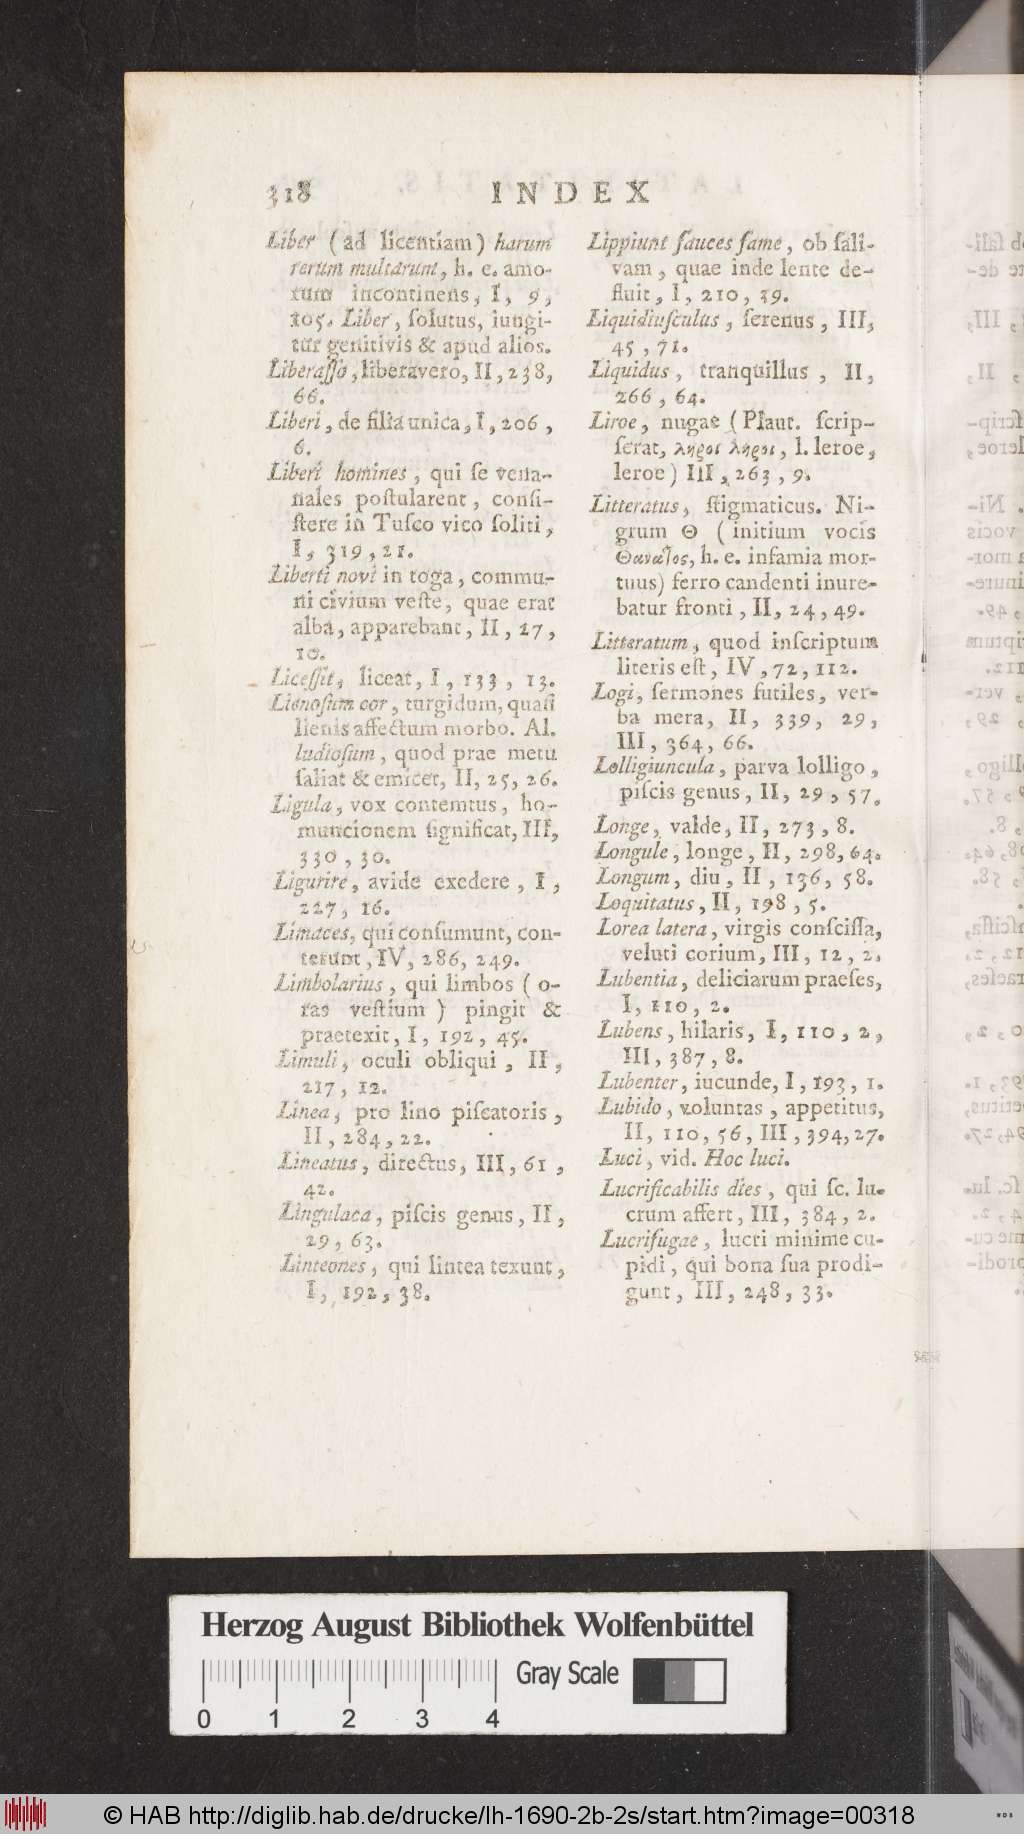 318 INDEX
Liber (ad licentiam) harum
rerum multarum, h. e. amo-
rum incontinens, I, 9,
105. Liber, ſolutus, iungi-
tur genitivis & apud alios.
Liberaſſo, liberavero, II, 238,
66.
Liberi, de filia unica, I, 206,
6.
Liberi homines, qui ſe vena-
nales poſtularent, conſi-
ſtere in Tuſco vico ſoliti,
I, 319, 21.
Liberti novi in toga, commu-
ni civium veſte, quae erat
alba, apparebant, II, 27,
10.
Liceſſit, liceat, I, 133, 13.
Lienoſum cor, turgidum, quaſi
lienis affectum morbo. Al.
ludioſum, quod prae metu
ſaliat & emicet, II, 25, 26.
Ligula, vox contemtus, ho-
muncionem ſignificat, III,
330, 30.
Ligurire, avide exedere, I,
227, 16.
Limaces, qui conſumunt, con-
terunt, IV, 286, 249.
Limbolarius, qui limbos (o-
ras veſtium) pingit &
praetexit, I, 192, 45.
Limuli, oculi obliqui, II,
217, 12.
Linea, pro lino piſcatoris,
II, 284, 22.
Lineatus, directus, III, 61,
42.
Lingulaca, piſcis genus, II,
29, 63.
Linteones, qui lintea texunt,
I, 192, 38.
Lippiunt fauces fame, ob ſali-
vam, quae inde lente de-
fluit, I, 210, 39.
Liquidiuſculus, ſerenus, III,
45, 71.
Liquidus, tranquillus, II,
266, 64.
Liroe, nugae (Plaut. ſcrip-
ſerat, ληροι ληροι, l. leroe,
leroe) III, 263, 9.
Litteratus, ſtigmaticus. Ni-
grum Θ (initium vocis
Θανατος, h. e. infamia mor-
tuus) ferro candenti inure-
batur fronti, II, 24, 49.
Litteratum, quod inſcriptum
literis eſt, IV, 72, 112.
Logi, ſermones futiles, ver-
ba mera, II, 339, 29,
III, 364, 66.
Lolligiuncula, parva lolligo,
piſcis genus, II, 29, 57.
Longe, valde, II, 273, 8.
Longule, longe, II, 298, 64.
Longum, diu, II, 136, 58.
Loquitatus, II, 198, 5.
Lorea latera, virgis conſciſſa,
veluti corium, III, 12, 2.
Lubentia, deliciarum praeſes,
I, 110, 2.
Lubens, hilaris, I, 110, 2,
III, 387, 8.
Lubenter, iucunde, I, 193, 1.
Lubido, voluntas, appetitus,
II, 110, 56, III, 394, 27.
Luci, vid. Hoc luci.
Lucrificabilis dies, qui ſc. lu-
crum affert, III, 384, 2.
Lucrifugae, lucri minime cu-
pidi, qui bona ſua prodi-
gunt, III, 248, 33.
Herzog August Bibliothek Wolfenbüttel
Gray Scale
0 1 2 3 4
© HAB http://diglib.hab.de/drucke/lh-1690-2b-2s/start.htm?image=00318